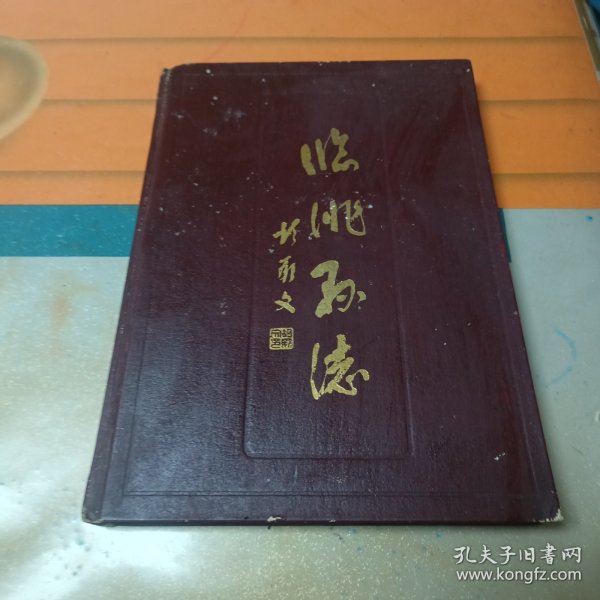 临洮县志
孔夫子旧书网
www.kongfz.com